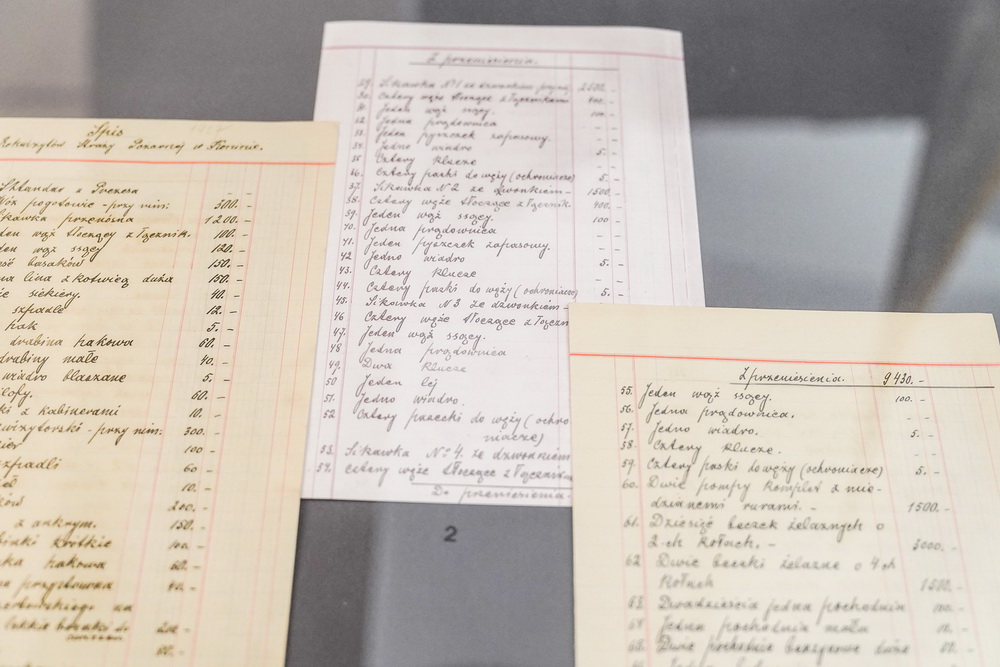 Spis
Rekwizytów Straży Pożarnej w Koninie.
Sztandar z Prezesa
Wóz pogotowie - przy nim: 500. -
Sikawka przenośna 1200. -
Jeden wąż tłoczący z łącznik. 100. -
Jeden wąż ssący 120. -
bosaków 150. -
lina z kotwicą duża 150. -
siekiery. 40. -
szpadle 12. -
hak 5. -
drabina hakowa 60. -
drabiny małe 40. -
wiadro blaszane 5. -
60. -
z kabinerami 10. -
- przy nim: 300. -
100 -
szpadli 60 -
10. -
200. -
150. -
krótkie 100. -
hakowa 60. -
przystawka 40. -
na
lekkie bosaki do 200 -
60. -
Z przeniesienia.
29. Sikawka Nº 1 ze dzwonkiem 2500. -
30. Cztery węże tłoczące z łącznikami 400. -
31. Jeden wąż ssący. 100. -
32. Jedna prądownica
33. Jeden pyszczek zapasowy.
34. Jedno wiadro 5. -
35 Cztery klucze
36. Cztery paski do węży (ochraniacze) 5. -
37. Sikawka Nº 2 ze dzwonkiem - 1500. -
38. Cztery węże tłoczące z łącznik. 400. -
39. Jeden wąż ssący. 100 -
40. Jedna prądownica
41. Jeden pyszczek zapasowy.
42 Jedno wiadro 5. -
43. Cztery klucze
44. Cztery paski do węży (ochraniacze) 5. -
45. Sikawka Nº 3 ze dzwonkiem -
46 Cztery węże tłoczące z łączn
47. Jeden wąż ssący.
48 Jedna prądownica
49. Dwa klucze
50 Jeden lej
51. Jedno wiadro.
52 Cztery paseczki do węży (ochro
niacze)
53. Sikawka Nº 4. ze dzwonkiem
54. Cztery węże tłoczące z łącznik
Do przeniesienia.
2
Z przeniesienia. 9430. -
55. Jeden wąż ssący. 100. -
56. Jedna prądownica.
57. Jedno wiadro. 5. -
58. Cztery klucze.
59. Cztery paski do węży (ochraniacze) 5. -
60. Dwie pompy komplet z mie-
dzianemi rurami. - 1500. -
61. Dziesięć beczek żelaznych o
2-ch kołach. - 3000. -
62 Dwie beczki żelazne o 4 ch
kołach 1500. -
63. Dwadzieścia jedna pochodnia
64 Jedna pochodnia mała
65. Dwie pochodnie benzynowe duże